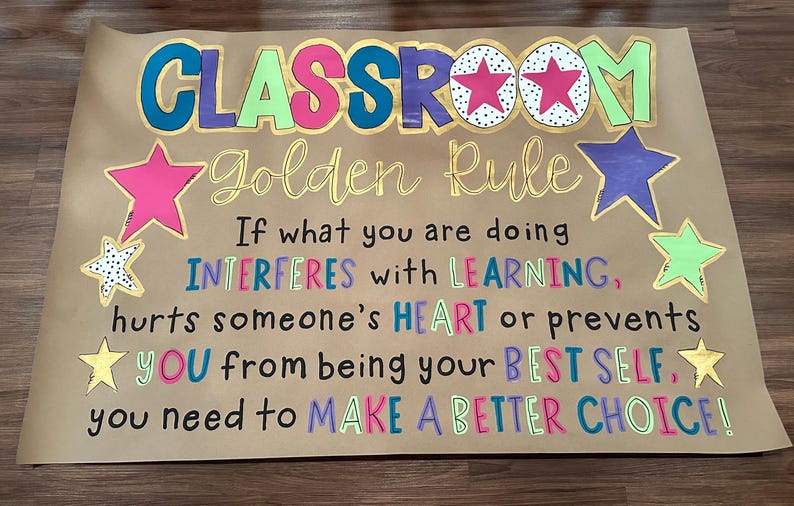 CLASSROOM
Golden Rule
If what you are doing
INTERFERES with LEARNING,
hurts someone's HEART or prevents
YOU from being your BEST SELF,
you need to MAKE A BETTER CHOICE!